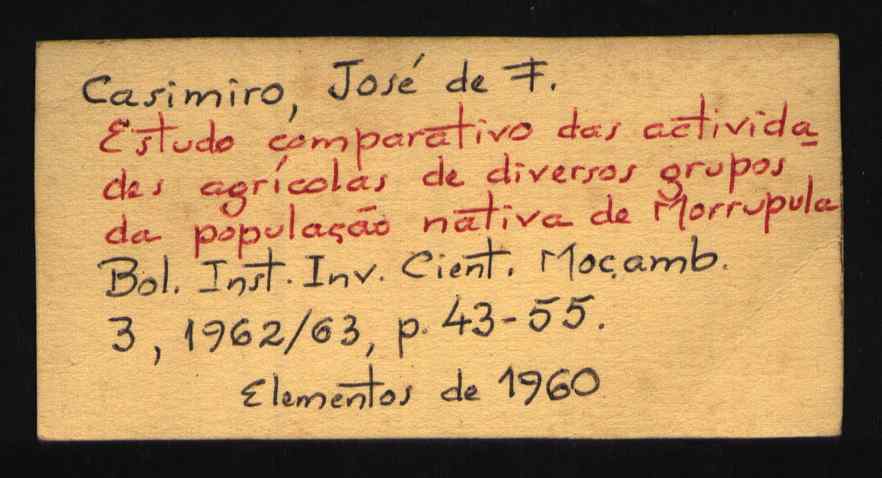 Casimiro, José de F.
Estudo comparativo das activida-
des agrícolas de diversos grupos
da população nativa de Morrupula
Bol. Inst. Inv. Cient. Moçamb.
3, 1962/63, p. 43-55.
Elementos de 1960